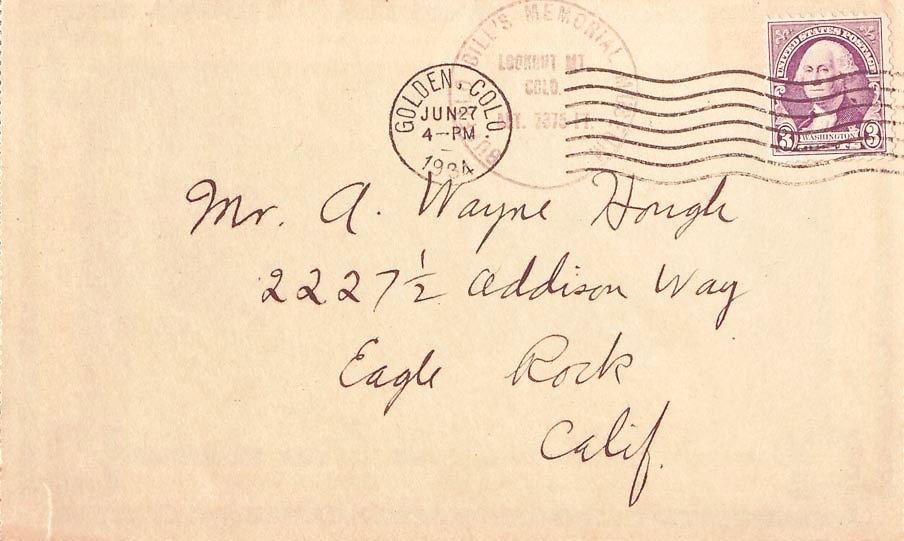 BUFFALO BILL'S MEMORIAL MUSEUM
LOOKOUT MT.
COLO.
GOLDEN, COLO.
JUN 27
4-PM
1934
UNITED STATES POSTAGE
3 WASHINGTON 3
Mr. A. Wayne Hough
2227½ Addison Way
Eagle Rock
Calif.